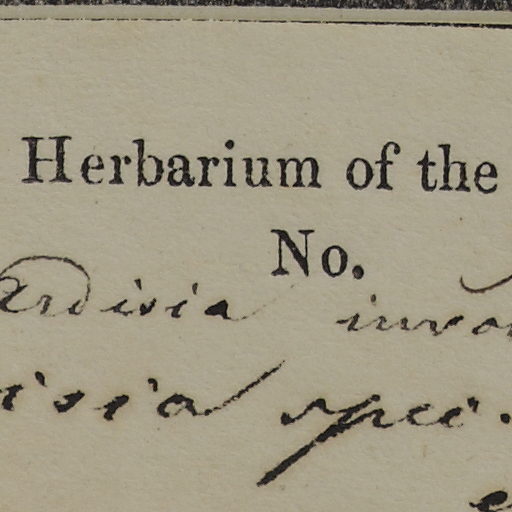 Herbarium of the
No.
Ardisia invo
isia spec.